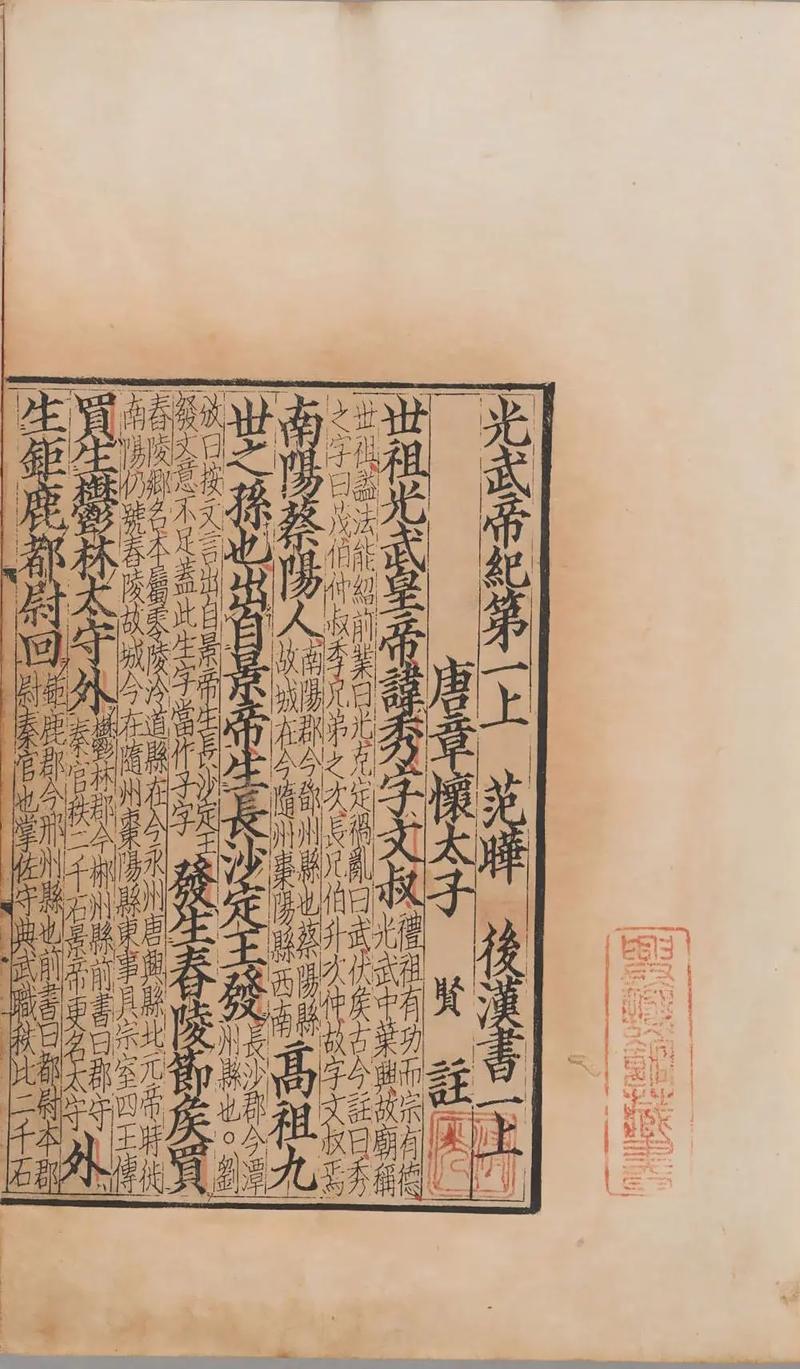 光武帝紀第一上 范曄 後漢書一上
唐章懷太子 賢 註
世祖光武皇帝諱秀字文叔 禮祖有功而宗有德 光武中葉興故廟稱
世祖謚法能紹前業曰光克定禍亂曰武伏侯古今註曰秀
之字曰茂伯仲叔季兄弟之次長兄伯升次仲故字文叔焉
南陽蔡陽人 南陽郡今鄧州縣也蔡陽縣 故城在今隨州棗陽縣西南 高祖九
世之孫也出自景帝生長沙定王發 長沙郡今潭 州縣也。劉
攽曰按文言出自景帝生長沙定王 發文意不足蓋此生字當作子字 發生舂陵節侯買
舂陵鄉名本屬零陵泠道縣在今永州唐興縣北元帝時徙
南陽仍號舂陵故城今在隨州棗陽縣東事具宗室四王傳
買生鬱林太守外 鬱林郡今郴州縣前書曰郡守 秦官秩二千石景帝更名太守 外
生鉅鹿都尉回 鉅鹿郡今邢州縣也前書曰都尉本郡 尉秦官也掌佐守典武職秩比二千石